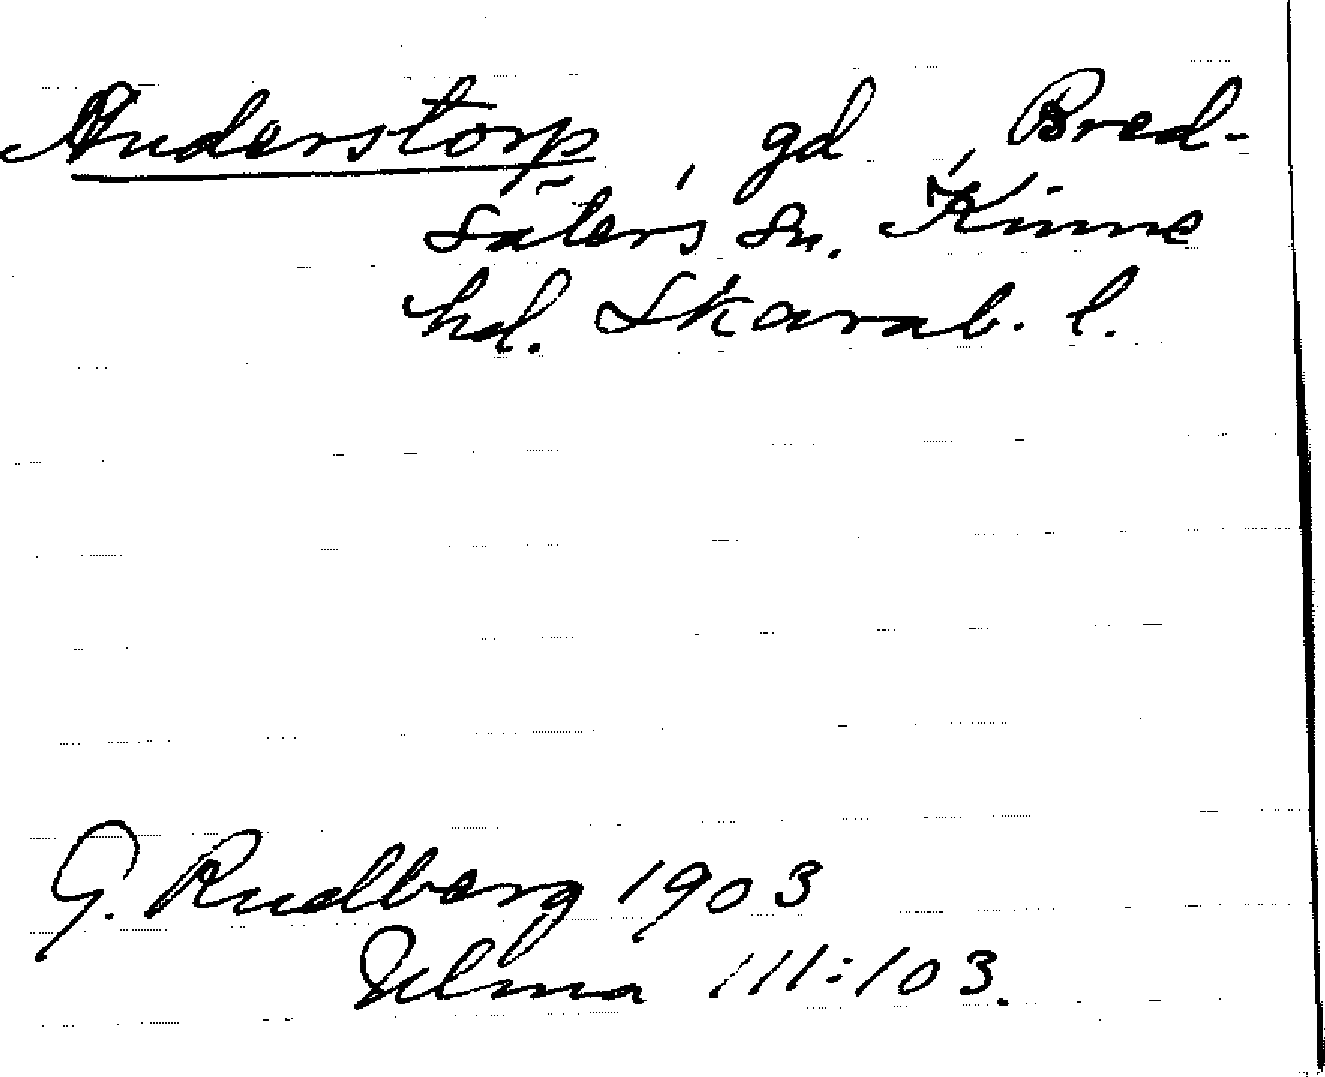 Anderstorp, gd, Bred-
säters sn. Kinne
hd. Skarab. l.
G. Rudberg 1903
111:103.